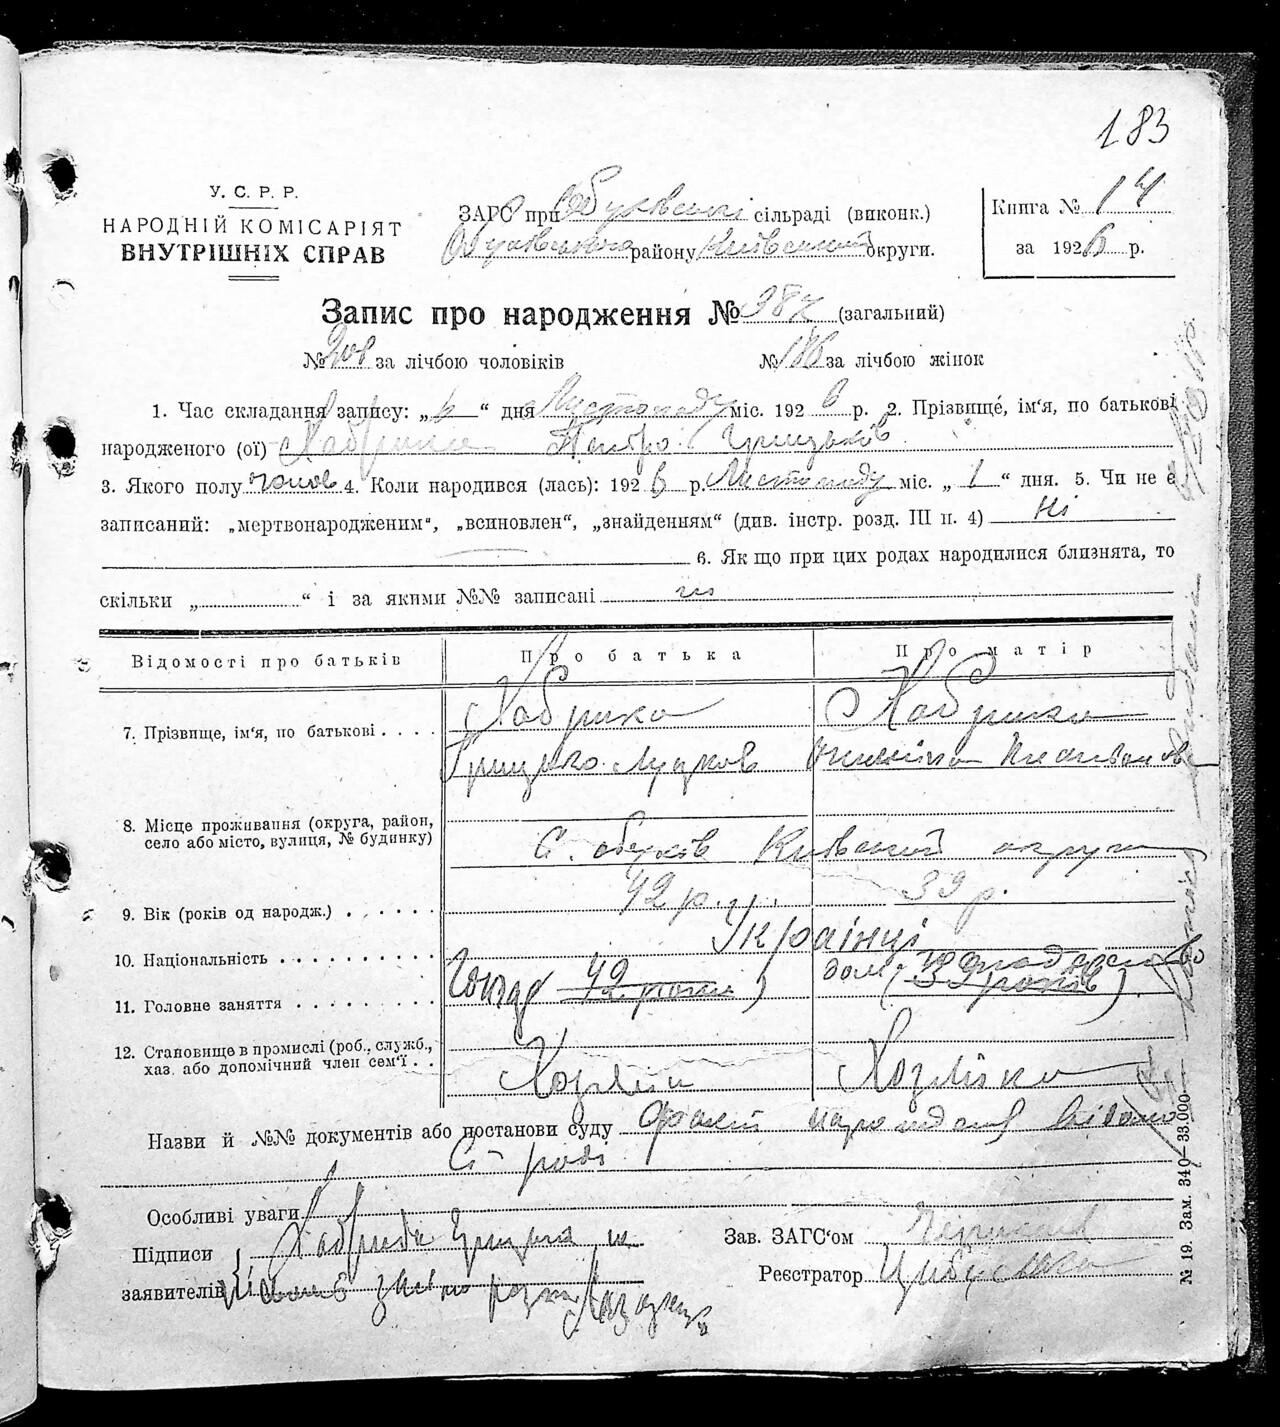 183
У. С. Р. Р.
НАРОДНІЙ КОМІСАРІЯТ
ВНУТРІШНІХ СПРАВ
ЗАГС при Обухівські сільраді (виконк.)
Обухівського району Київський округи.
Книга № 14
за 1926 р.
Запис про народження № 387 (загальний)
№ 201 за лічбою чоловіків № 186 за лічбою жінок
1. Час складання запису: „6“ дня Листопаду міс. 1926 р. 2. Прізвище, ім'я, по батькові
народженого (ої) Хабрика Петро Грицьків
3. Якого полу чолов 4. Коли народився (лась): 1926 р. Листопаду міс. „1“ дня. 5. Чи не є
записаний: „мертвонародженим“, „всиновлен“, „знайденням“ (див. інстр. розд. III п. 4) Ні
6. Як що при цих родах народилися близнята, то
скільки „ “ і за якими №№ записані ні
Відомості про батьків Про батька Про матір
7. Прізвище, ім'я, по батькові Хабрика Хабрика
Грицько
8. Місце проживання (округа, район,
село або місто, вулиця, № будинку) С. Обухів Київський округи
9. Вік (років од народж.) 42 р. 39 р.
10. Національність Українці
11. Головне заняття 42 роки 39 років
12. Становище в промислі (роб., служб.,
хаз. або допомічний член сем'ї Хозяїн Хозяйка
Назви й №№ документів або постанови суду Факт народження відомо
С-раді
Особливі уваги
Підписи Хабрика Грицька
заявителів
Зав. ЗАГС'ом
Реєстратор
№ 19. Зам. 340—33.000